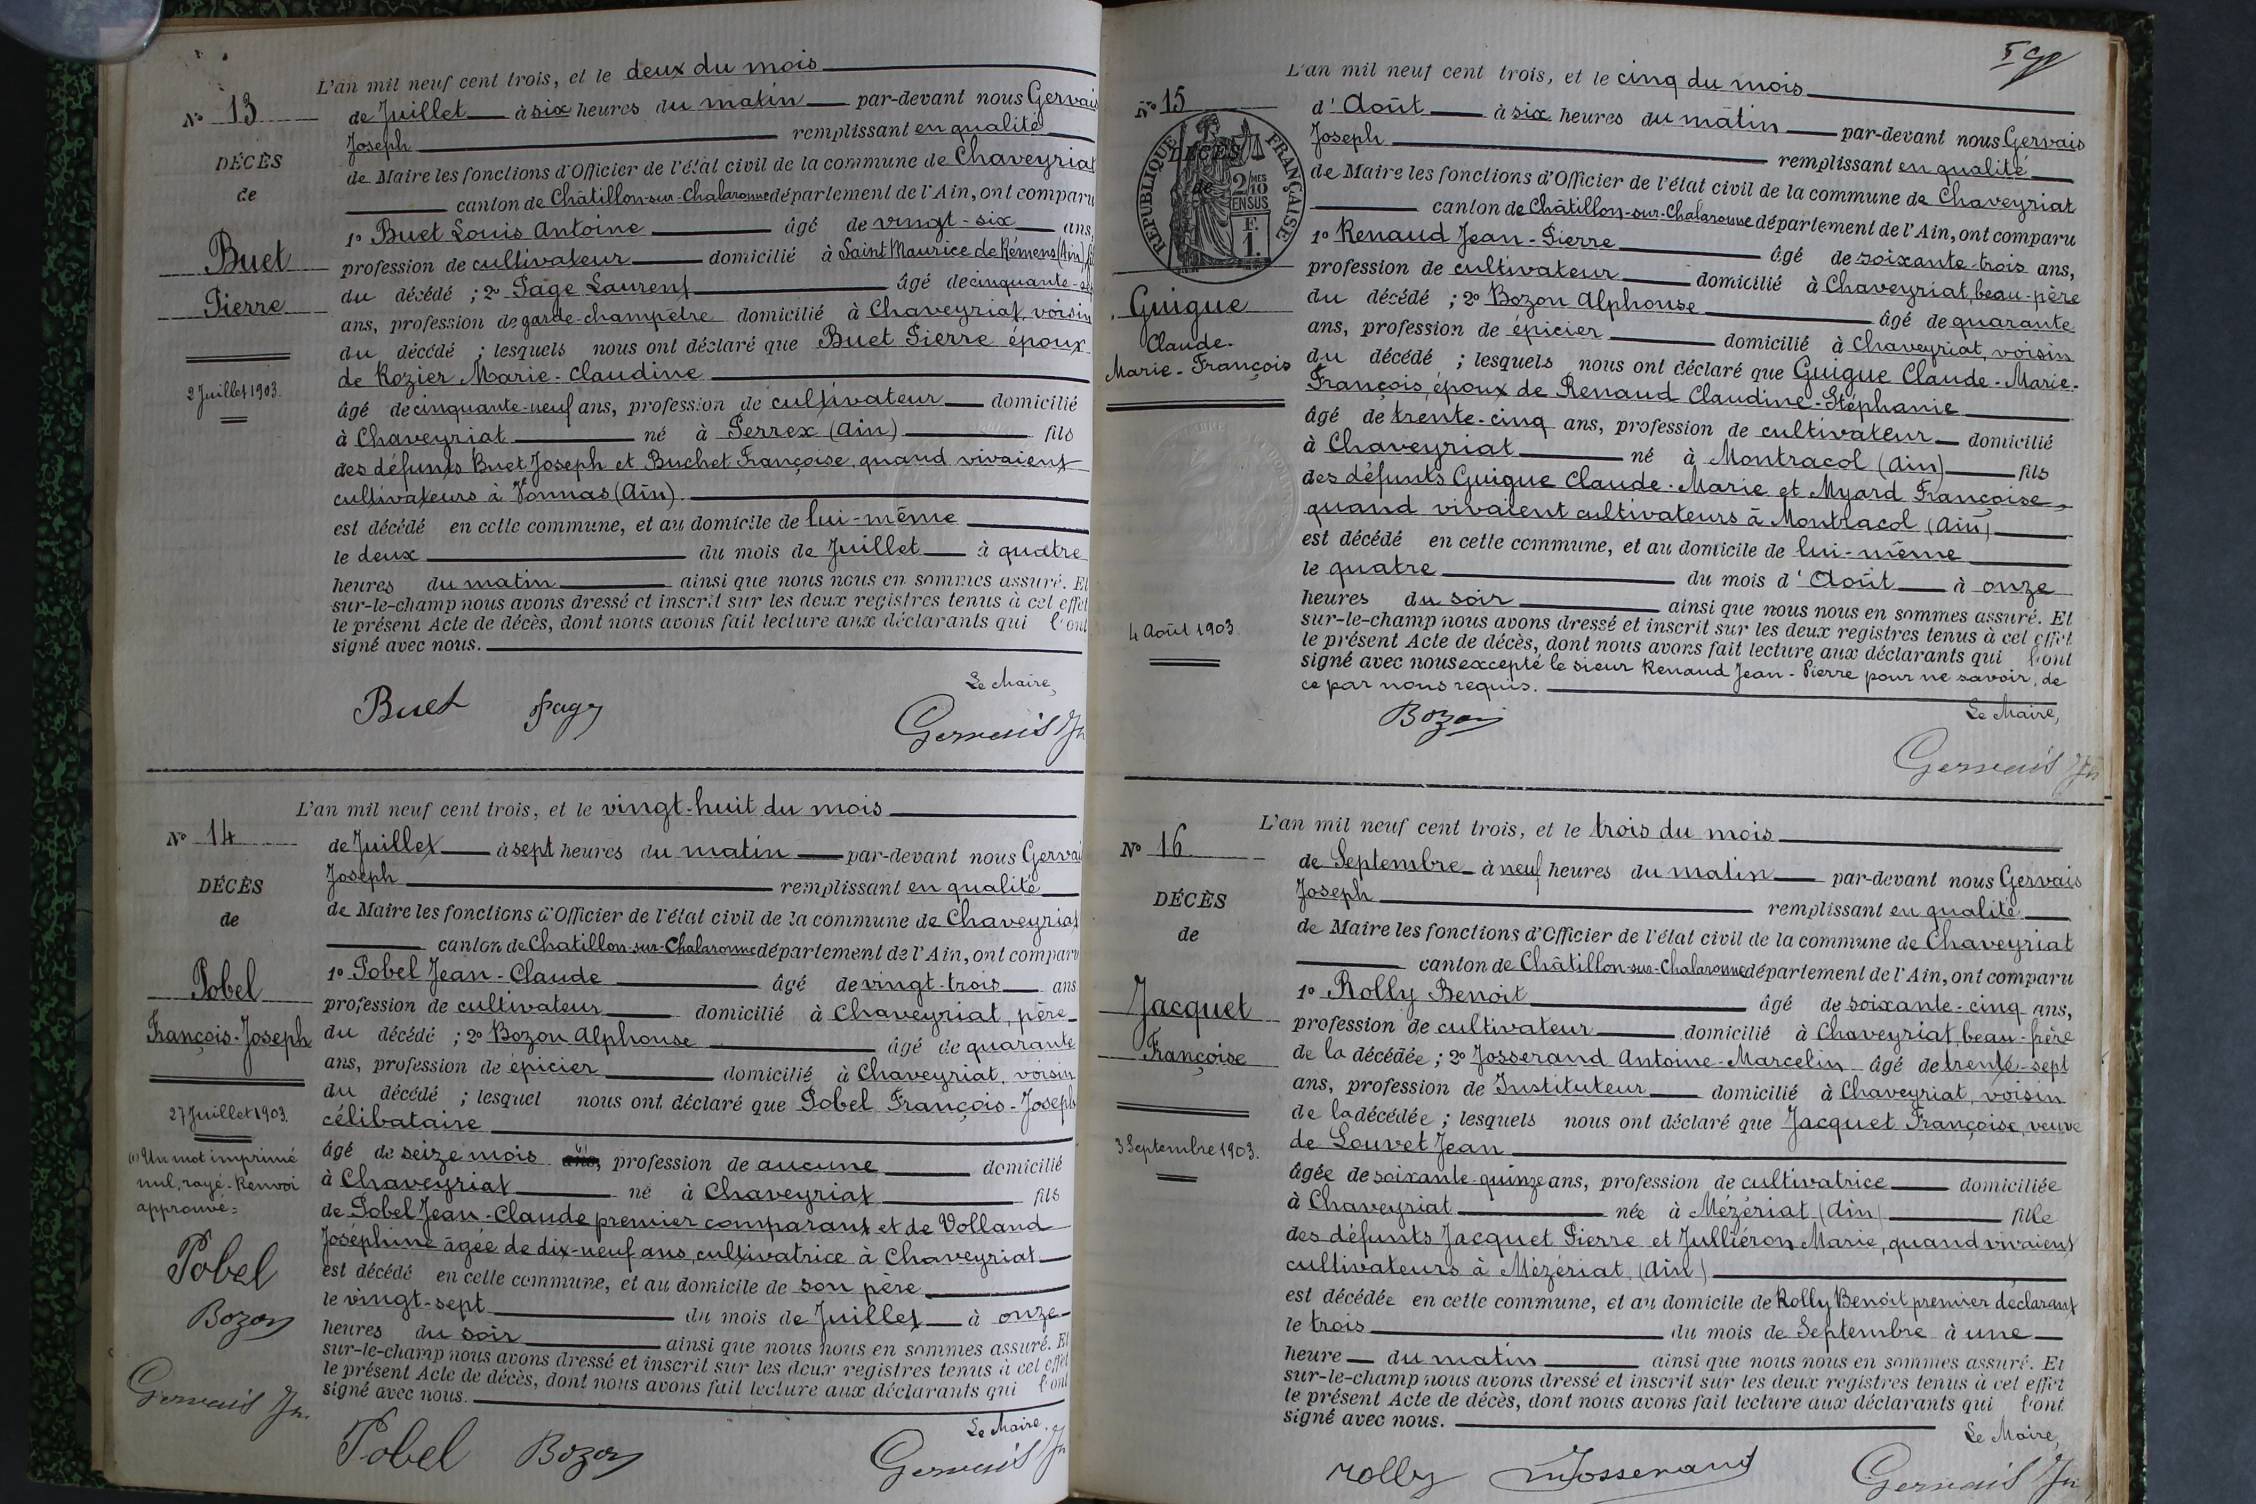 L'an mil neuf cent trois, et le deux du mois
N° 13
de Juillet à six heures du matin par-devant nous Gervais
Joseph remplissant en qualité
DÉCÈS
de Maire les fonctions d'Officier de l'état civil de la commune de Chaveyriat
de
canton de Châtillon-sur-Chalaronne département de l'Ain, ont comparu
1° Buet Louis Antoine âgé de vingt-six ans,
Buet
profession de cultivateur domicilié à Saint Maurice de Rémens (Ain)
du décédé ; 2° Page Laurent âgé de cinquante-
Pierre
ans, profession de garde-champêtre domicilié à Chaveyriat, voisin
du décédé ; lesquels nous ont déclaré que Buet Pierre époux
de Rozier Marie-Claudine
2 Juillet 1903.
âgé de cinquante-neuf ans, profession de cultivateur domicilié
à Chaveyriat né à Perrex (Ain) fils
des défunts Buet Joseph et Buchet Françoise, quand vivaient
cultivateurs à Vonnas (Ain).
est décédé en cette commune, et au domicile de lui-même
le deux du mois de Juillet à quatre
heures du matin ainsi que nous nous en sommes assuré. Et
sur-le-champ nous avons dressé et inscrit sur les deux registres tenus à cet effet
le présent Acte de décès, dont nous avons fait lecture aux déclarants qui l'ont
signé avec nous.
Le Maire,
Buet Page Gervais Jh
L'an mil neuf cent trois, et le vingt-huit du mois
N° 14
de Juillet à sept heures du matin par-devant nous Gervais
Joseph remplissant en qualité
DÉCÈS
de Maire les fonctions d'Officier de l'état civil de la commune de Chaveyriat
de
canton de Chatillon-sur-Chalaronne département de l'Ain, ont comparu
1° Pobel Jean-Claude âgé de vingt-trois ans
Pobel
profession de cultivateur domicilié à Chaveyriat, père
François-Joseph
du décédé ; 2° Bozon Alphonse âgé de quarante
ans, profession de épicier domicilié à Chaveyriat, voisin
du décédé ; lesquel nous ont déclaré que Pobel François-Joseph
27 Juillet 1903.
célibataire
(1) Un mot imprimé
nul, rayé. Renvoi
approuvé =
âgé de seize mois (1) ans, profession de aucune domicilié
à Chaveyriat né à Chaveyriat fils
de Pobel Jean-Claude premier comparant et de Volland
Joséphine âgée de dix-neuf ans, cultivatrice à Chaveyriat
est décédé en cette commune, et au domicile de son père
le vingt-sept du mois de Juillet à onze
heures du soir ainsi que nous nous en sommes assuré. Et
sur-le-champ nous avons dressé et inscrit sur les deux registres tenus à cet effet
le présent Acte de décès, dont nous avons fait lecture aux déclarants qui l'ont
signé avec nous.
Pobel
Bozon
Gervais Jh.
Le Maire.
Pobel Bozon Gervais Jh
L'an mil neuf cent trois, et le cinq du mois
N° 15
d'Août à six heures du matin par-devant nous Gervais
Joseph remplissant en qualité
DÉCÈS
de
RÉPUBLIQUE FRANÇAISE
2/10 MES
EN SUS
F.
1.
de Maire les fonctions d'Officier de l'état civil de la commune de Chaveyriat
canton de Châtillon-sur-Chalaronne département de l'Ain, ont comparu
1° Renaud Jean-Pierre âgé de soixante-trois ans,
profession de cultivateur domicilié à Chaveyriat, beau-père
Guigue
du décédé ; 2° Bozon Alphonse âgé de quarante
Claude-
ans, profession de épicier domicilié à Chaveyriat, voisin
Marie-François
du décédé ; lesquels nous ont déclaré que Guigue Claude-Marie-
François, époux de Renaud Claudine-Stéphanie
âgé de trente-cinq ans, profession de cultivateur domicilié
à Chaveyriat né à Montracol (Ain) fils
des défunts Guigue Claude-Marie et Myard Françoise,
quand vivaient cultivateurs à Montracol (Ain)
est décédé en cette commune, et au domicile de lui-même
le quatre du mois d'Août à onze
4 Août 1903.
heures du soir ainsi que nous nous en sommes assuré. Et
sur-le-champ nous avons dressé et inscrit sur les deux registres tenus à cet effet
le présent Acte de décès, dont nous avons fait lecture aux déclarants qui l'ont
signé avec nous excepté le sieur Renaud Jean-Pierre pour ne savoir, de
ce par nous requis.
Le Maire,
Bozon Gervais Jh
L'an mil neuf cent trois, et le trois du mois
N° 16
de Septembre à neuf heures du matin par-devant nous Gervais
Joseph remplissant en qualité
DÉCÈS
de Maire les fonctions d'Officier de l'état civil de la commune de Chaveyriat
de
canton de Châtillon-sur-Chalaronne département de l'Ain, ont comparu
1° Rolly Benoit âgé de soixante-cinq ans,
Jacquet
profession de cultivateur domicilié à Chaveyriat, beau-frère
Françoise
de la décédée ; 2° Josserand Antoine-Marcelin âgé de trente-sept
ans, profession de Instituteur domicilié à Chaveyriat, voisin
de la décédée ; lesquels nous ont déclaré que Jacquet Françoise, veuve
3 Septembre 1903.
de Louvet Jean
âgée de soixante-quinze ans, profession de cultivatrice domiciliée
à Chaveyriat née à Mézériat (Ain) fille
des défunts Jacquet Pierre et Julliéron Marie, quand vivaient
cultivateurs à Mézériat (Ain)
est décédée en cette commune, et au domicile de Rolly Benoit premier déclarant
le trois du mois de Septembre à une
heure du matin ainsi que nous nous en sommes assuré. Et
sur-le-champ nous avons dressé et inscrit sur les deux registres tenus à cet effet
le présent Acte de décès, dont nous avons fait lecture aux déclarants qui l'ont
signé avec nous.
Le Maire,
Rolly Josserand Gervais Jh